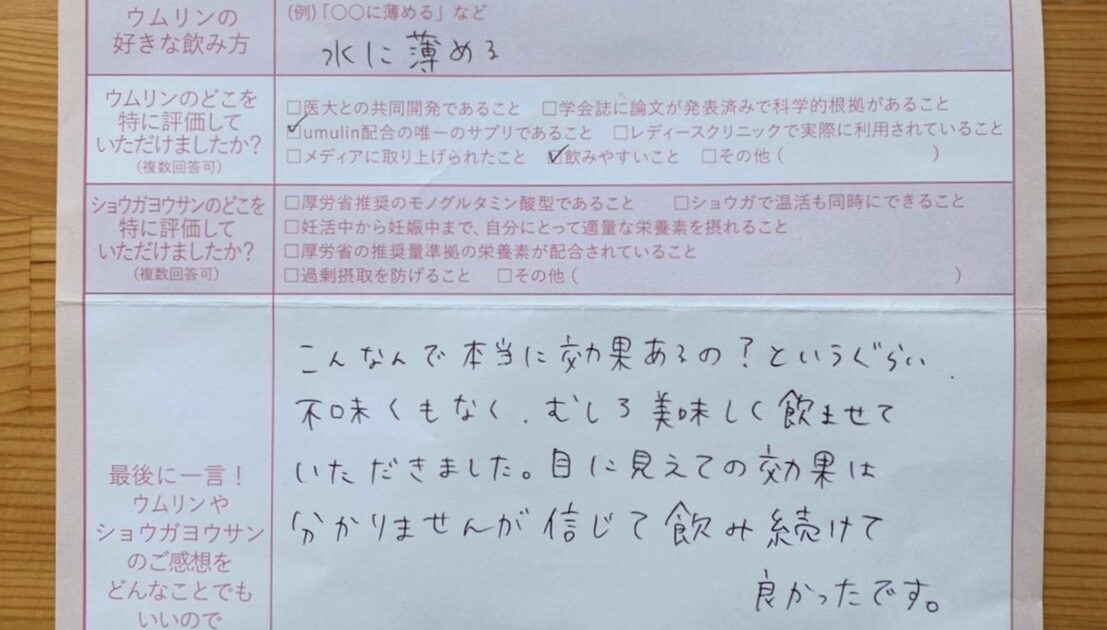 ウムリンの
好きな飲み方
(例)「〇〇に薄める」など
水に薄める
ウムリンのどこを
特に評価して
いただけましたか?
(複数回答可)
□医大との共同開発であること □学会誌に論文が発表済みで科学的根拠があること
☑umulin配合の唯一のサプリであること □レディースクリニックで実際に利用されていること
□メディアに取り上げられたこと ☑飲みやすいこと □その他( )
ショウガヨウサンのどこを
特に評価して
いただけましたか?
(複数回答可)
□厚労省推奨のモノグルタミン酸型であること □ショウガで温活も同時にできること
□妊活中から妊娠中まで、自分にとって適量な栄養素を摂れること
□厚労省の推奨量準拠の栄養素が配合されていること
□過剰摂取を防げること □その他( )
最後に一言!
ウムリンや
ショウガヨウサン
のご感想を
どんなことでも
いいので
こんなんで本当に効果あるの?というぐらい
不味くもなく、むしろ美味しく飲ませて
いただきました。目に見えての効果は
分かりませんが信じて飲み続けて
良かったです。